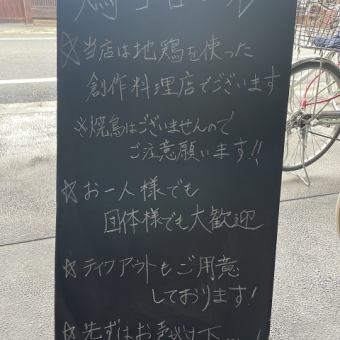 ☆当店は地鶏を使った
創作料理店でございます
※焼鳥はございませんので
ご注意願います!!
☆お一人様でも
団体様でも大歓迎
☆テイクアウトもご用意
しております!
☆先ずはお声がけ下